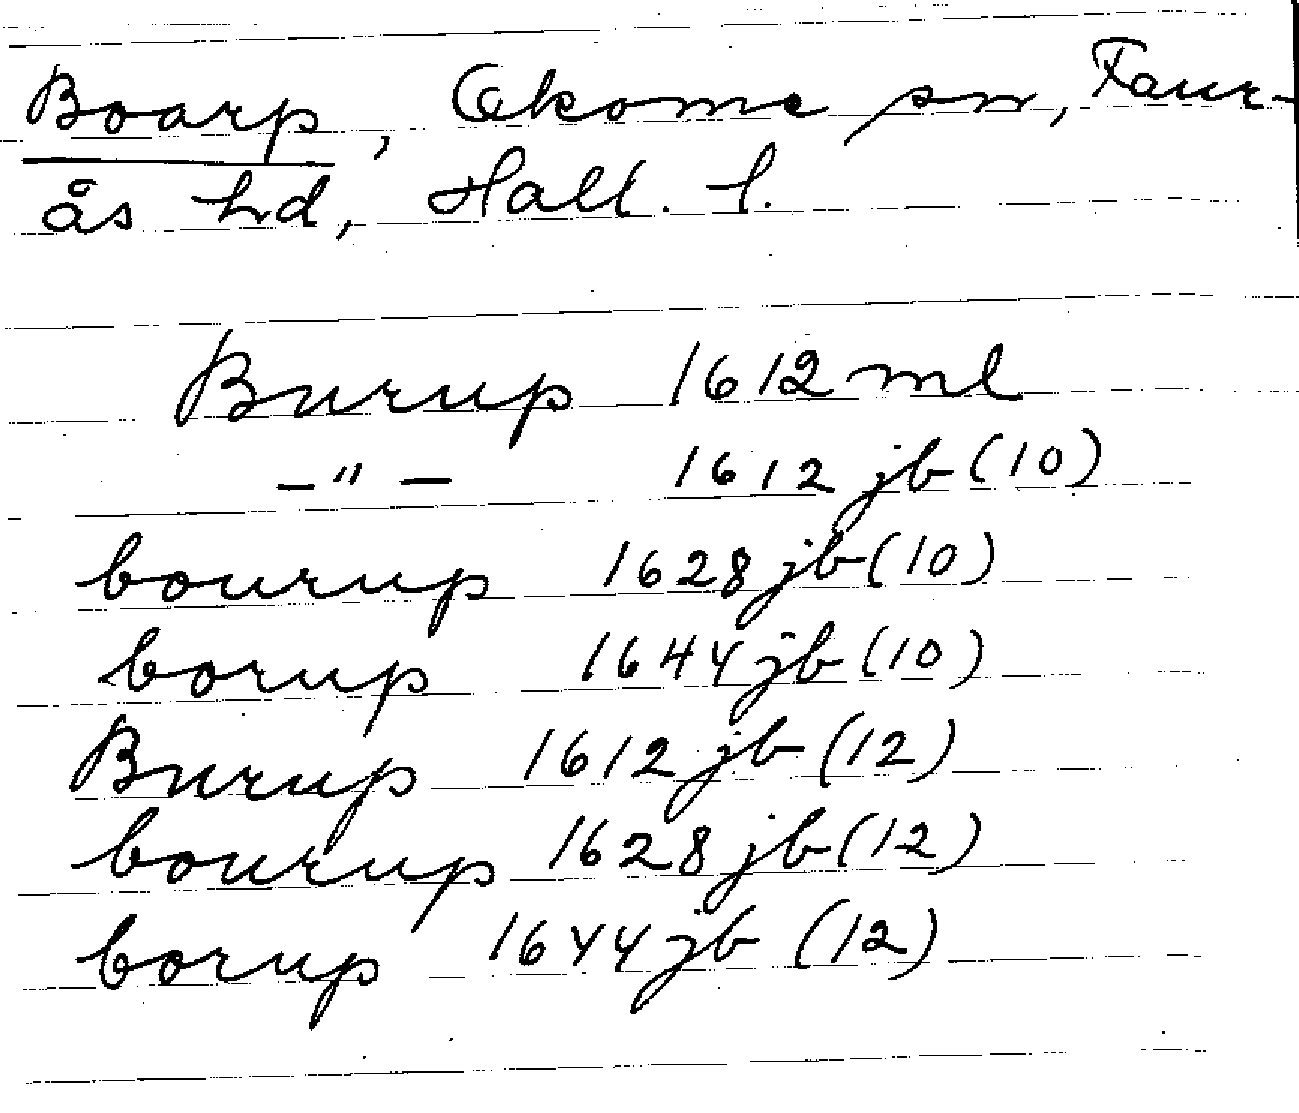 Boarp, Okome sn, Faur-
ås hd, Hall. l.
Burup 1612 ml
—"— 1612 jb (10)
bourup 1628 jb (10)
borup 1644 jb (10)
Burup 1612 jb (12)
bourup 1628 jb (12)
borup 1644 jb (12)